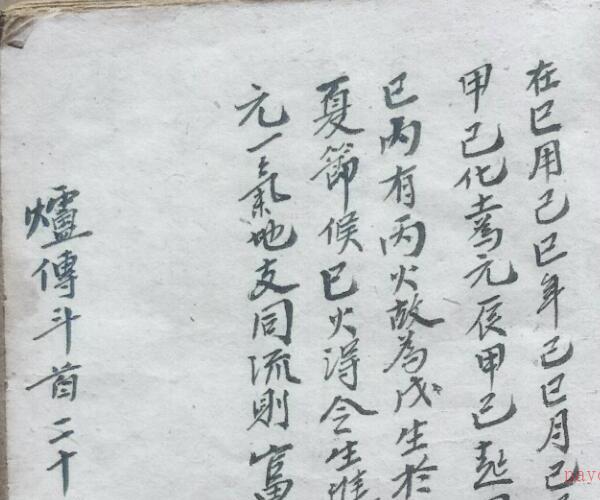 在巳用己巳年己巳月己
甲己化土為元辰甲己起
巳丙有丙火故為戊生於
夏節候巳火得令生
元一氣地支同流則富
爐傳斗首二十